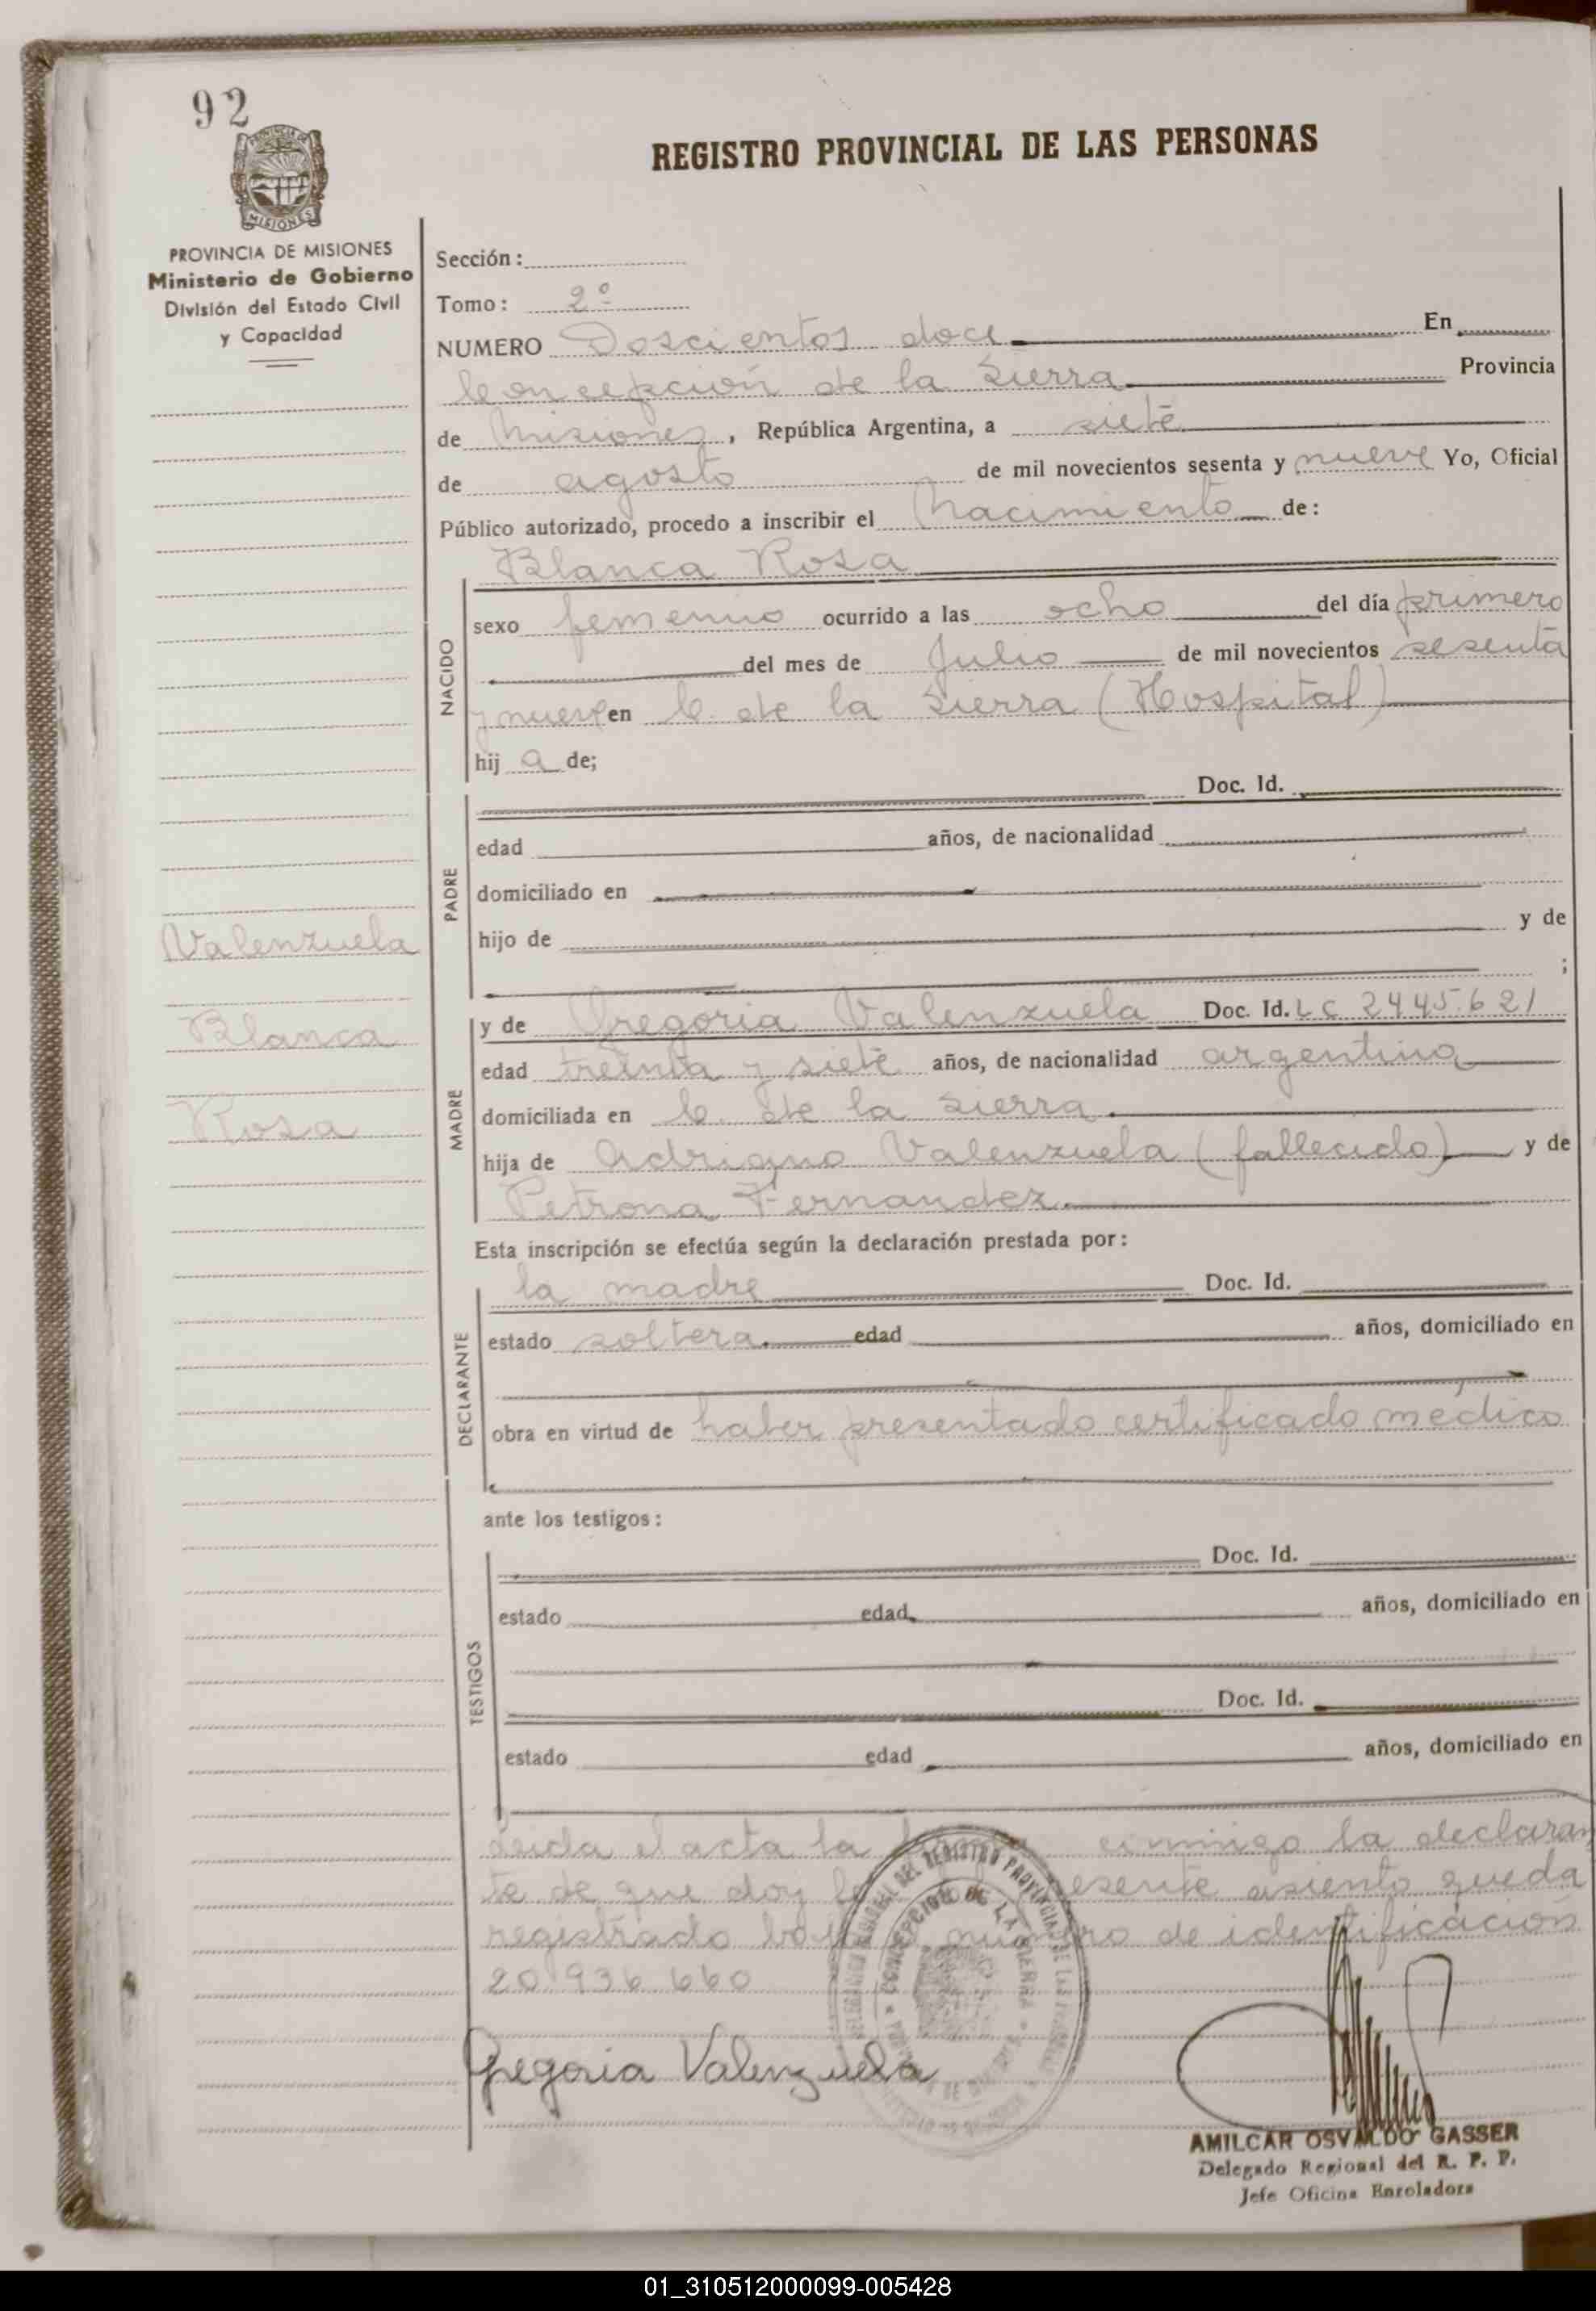 92
PROVINCIA DE
MISIONES
REGISTRO PROVINCIAL DE LAS PERSONAS
PROVINCIA DE MISIONES
Ministerio de Gobierno
División del Estado Civil
y Capacidad
Sección:
Tomo: 2º
NUMERO Doscientos doce En
Concepción de la Sierra Provincia
de Misiones, República Argentina, a siete
de agosto de mil novecientos sesenta y nueve Yo, Oficial
Público autorizado, procedo a inscribir el Nacimiento de:
Blanca Rosa
NACIDO
sexo femenino ocurrido a las ocho del día primero
del mes de Julio de mil novecientos sesenta
y nueve en C. de la Sierra (Hospital)
hij a de;
PADRE
Doc. Id.
edad años, de nacionalidad
domiciliado en
hijo de y de
;
Valenzuela
Blanca
Rosa
MADRE
y de Gregoria Valenzuela Doc. Id. LC 2445.621
edad treinta y siete años, de nacionalidad argentina
domiciliada en C. de la Sierra
hija de Adriano Valenzuela (fallecido) y de
Petrona Fernandez
Esta inscripción se efectúa según la declaración prestada por:
DECLARANTE
la madre Doc. Id.
estado soltera. edad años, domiciliado en
obra en virtud de haber presentado certificado médico
ante los testigos:
TESTIGOS
Doc. Id.
estado edad años, domiciliado en
Doc. Id.
estado edad años, domiciliado en
Leida el acta la conmigo la declaran
te de que doy esente asiento queda
registrado número de identificación
20.936.660
REGISTRO PROVINCIAL DE LAS
CONCEPCION DE LA SIERRA
Gregoria Valenzuela
AMILCAR OSVALDO GASSER
Delegado Regional del R. P. P.
Jefe Oficina Enroladora
01_310512000099-005428